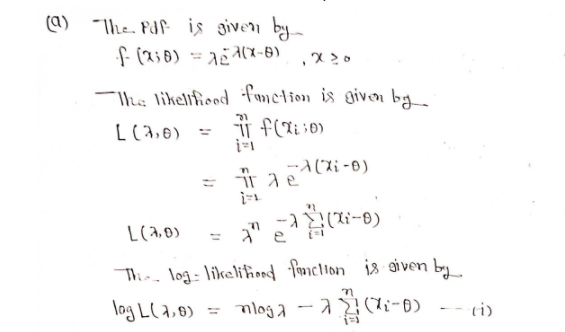 (a) The Pdf is given by
f(x;θ) = λe^{-λ(x-θ)} , x ≥ 0
The likelihood function is given by
L(λ,θ) = ∏_{i=1}^{n} f(xi;θ)
= ∏_{i=1}^{n} λ e^{-λ(xi-θ)}
L(λ,θ) = λ^n e^{-λ ∑_{i=1}^{n} (xi-θ)}
The log-likelihood function is given by
log L(λ,θ) = n log λ - λ ∑_{i=1}^{n} (xi-θ) --- (i)